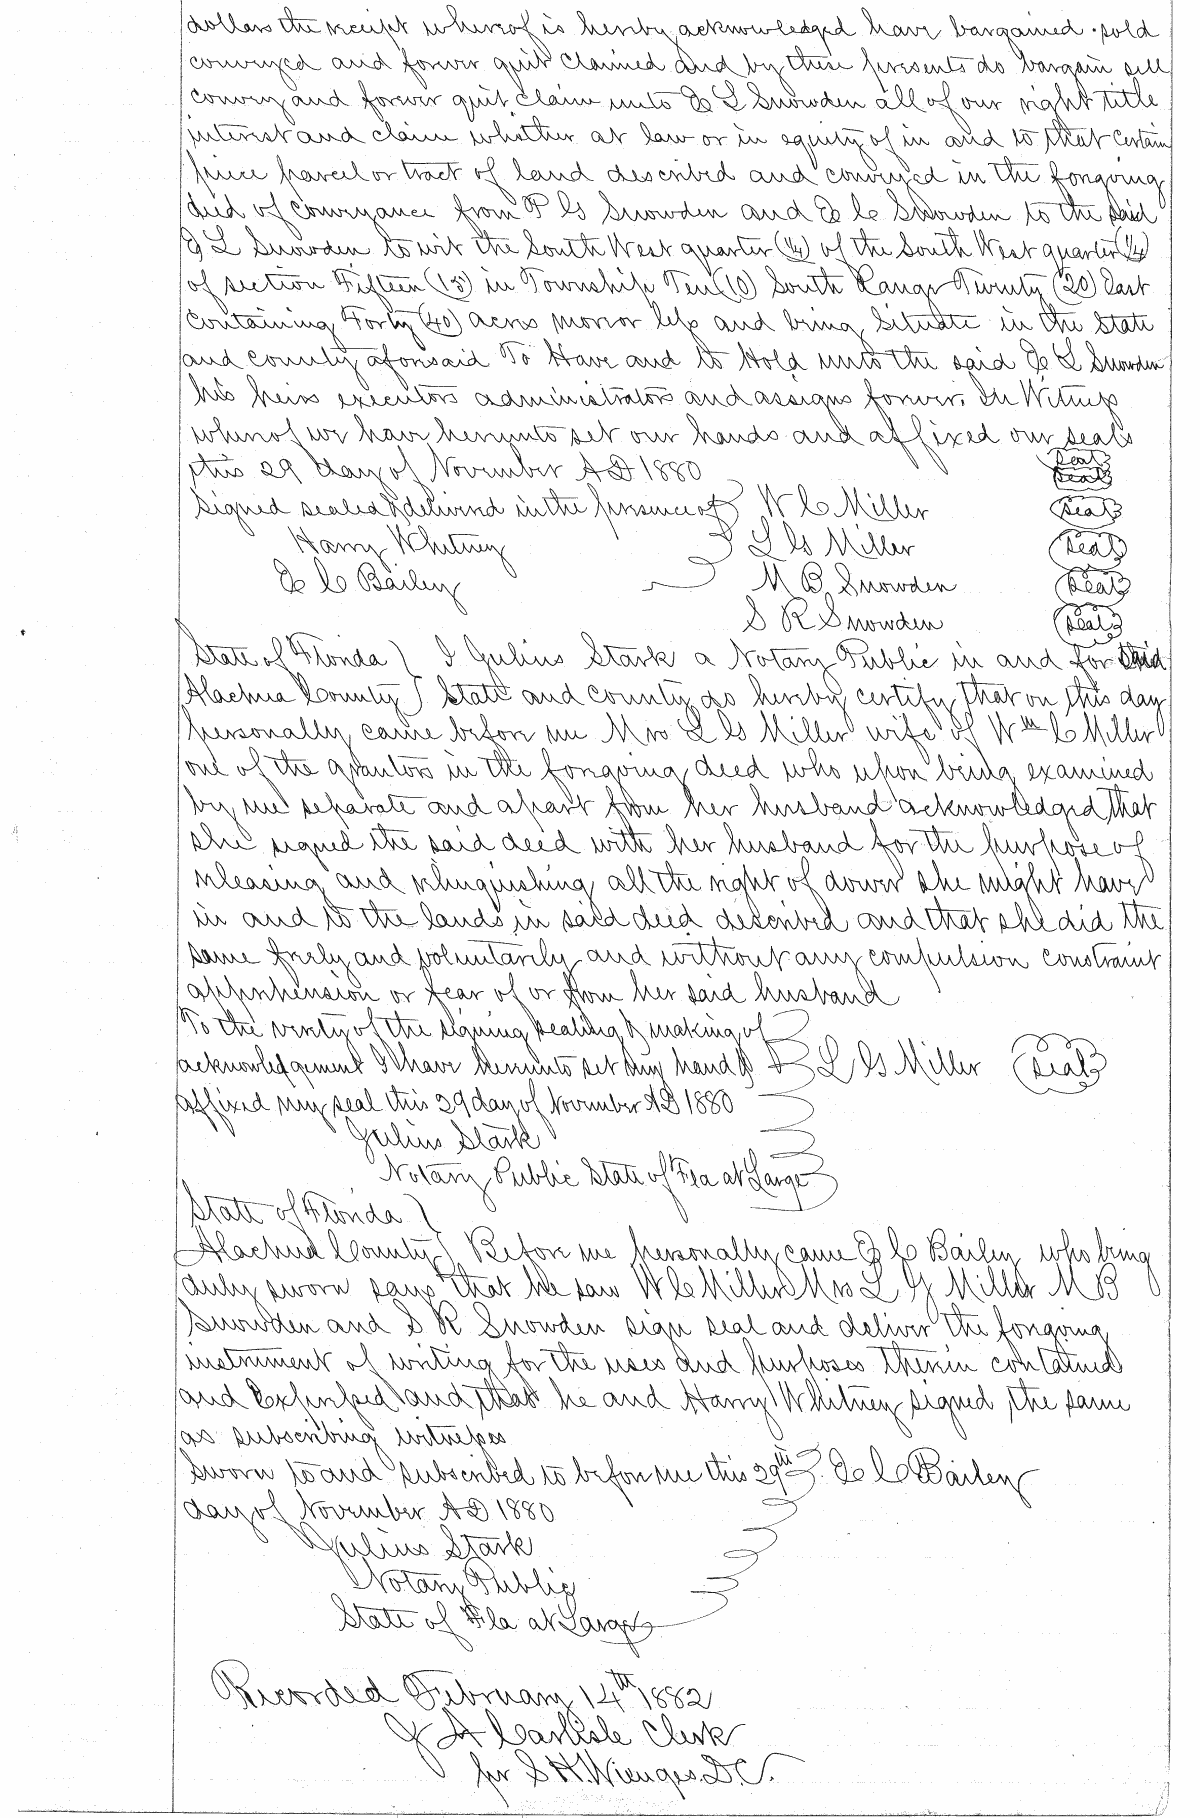 dollars the receipt whereof is hereby acknowledged have bargained sold
conveyed and forever quit claimed and by these presents do bargain sell
convey and forever quit claim unto E L Snowden all of our right title
interest and claim whether at law or in equity of in and to that certain
piece parcel or tract of land described and conveyed in the foregoing
deed of conveyance from P G Snowden and E C Snowden to the said
E L Snowden to wit the South West quarter (1/4) of the South West quarter (1/4)
of section Fifteen (15) in Township Ten (10) South Range Twenty (20) East
containing Forty (40) acres more or less and being situate in the State
and county aforesaid To Have and to Hold unto the said E L Snowden
his heirs executors administrators and assigns forever. In Witness
whereof we have hereunto set our hands and affixed our seals
this 29 day of November AD 1880 seal
seal
Signed sealed & delivered in the presence of W C Miller seal
Harry Whitney L G Miller seal
E C Bailey M B Snowden seal
S R Snowden seal
State of Florida ) I Julius Stark a Notary Public in and for said
Alachua County ) State and county do hereby certify that on this day
personally came before me Mrs L G Miller wife of Wm C Miller
one of the grantors in the foregoing deed who upon being examined
by me separate and apart from her husband acknowledged that
she signed the said deed with her husband for the purpose of
releasing and relinquishing all the right of dower she might have
in and to the lands in said deed described and that she did the
same freely and voluntarily and without any compulsion constraint
apprehension or fear of or from her said husband
To the verity of the signing sealing & making of
acknowledgement I have hereunto set my hand & L G Miller seal
affixed my seal this 29 day of November AD 1880
Julius Stark
Notary Public State of Fla at Large
State of Florida )
Alachua County ) Before me personally came E C Bailey who being
duly sworn says that he saw W C Miller Mrs L G Miller M B
Snowden and S R Snowden sign seal and deliver the foregoing
instrument of writing for the uses and purposes therein contained
and Expressed and that he and Harry Whitney signed the same
as subscribing witnesses
Sworn to and subscribed to before me this 29th E C Bailey
day of November AD 1880
Julius Stark
Notary Public
State of Fla at Large
Recorded February 14th 1882
J A Carlisle Clerk
per S H. Wienges. D.C.